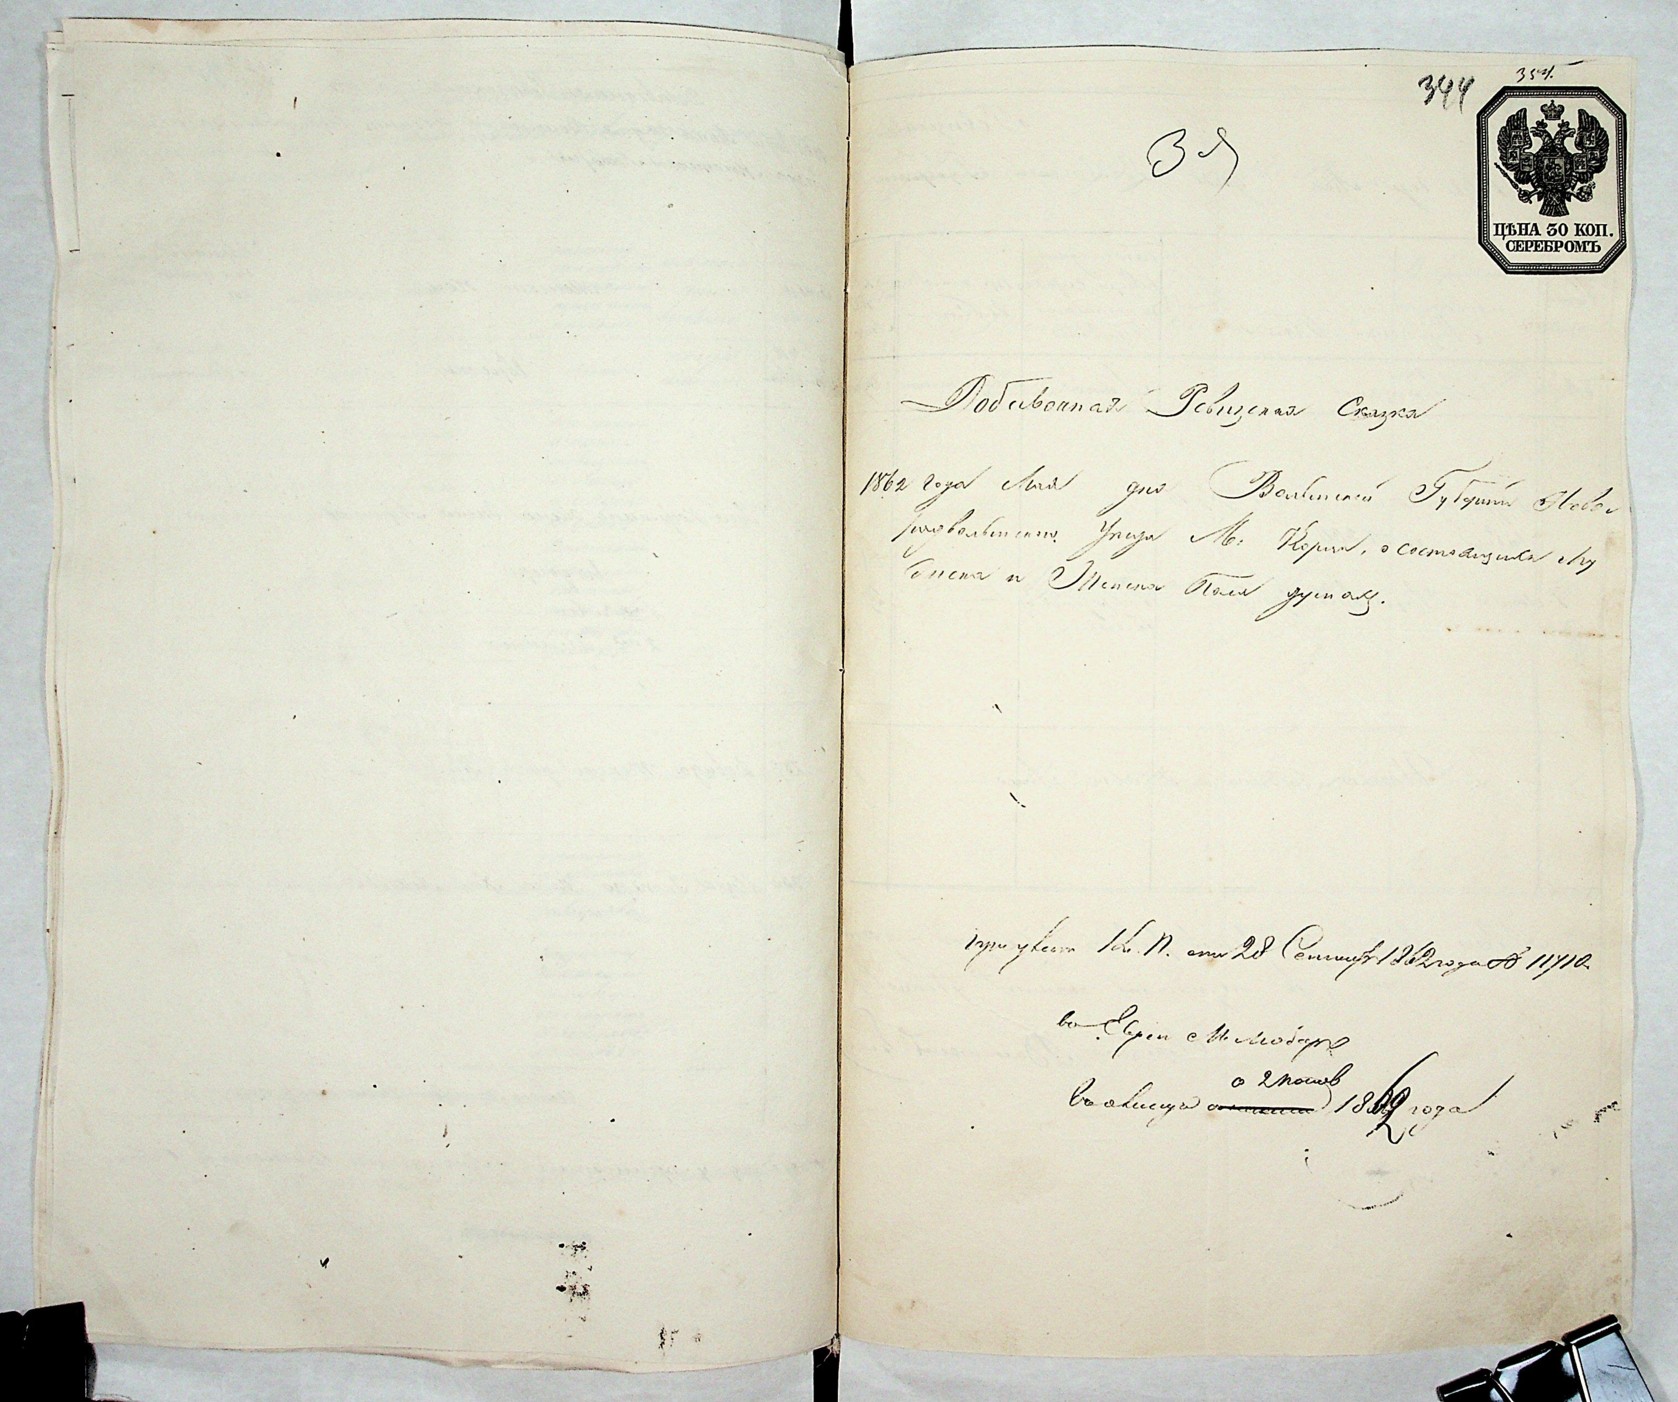 344
35 к.
ЦѢНА 30 КОП.
СЕРЕБРОМЪ
3 я
Добавочная Ревизская Сказка
1862 года Мая дня Волынской Губерніи Ново
градволынского Уезда М. Корца, о состоящихъ Му
жеска и Женска Пола душахъ.
при указѣ К. П. отъ 28 1862 года № 11710
во Евреи М. Любаръ
о 2 полов
1862 года